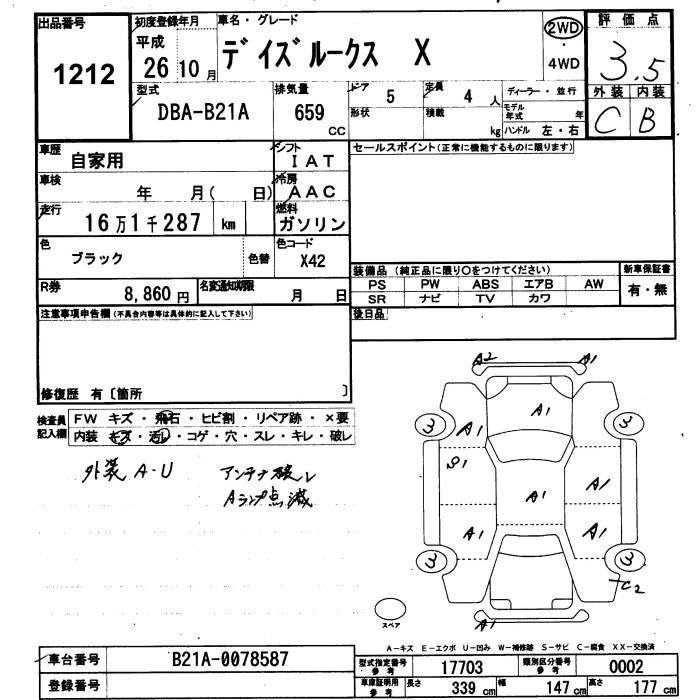 出品番号
1212
初度登録年月 車名・グレード
平成
26 年 10 月 デイズルークス X
2WD
・
4WD
評価点
3.5
外装 内装
C B
型式 DBA-B21A
排気量 659 CC
ドア 5
形状
定員 4 人
積載 kg
ディーラー・並行
モデル年式 年
ハンドル 左・右
車歴 自家用
シフト IAT
車検 年 月( 日)
冷房 AAC
走行 16万1千287 km
燃料 ガソリン
色 ブラック 色替
色コード X42
R券 8,860円
名変通知期限 月 日
セールスポイント(正常に機能するものに限ります)
装備品(純正品に限り○をつけてください)
PS PW ABS エアB AW
SR ナビ TV カワ
新車保証書
有・無
後日品
注意事項申告欄(不具合内容等は具体的に記入して下さい)
修復歴 有〔箇所 〕
検査員記入欄
FW キズ・飛石・ヒビ割・リペア跡・×要
内装 キズ・汚レ・コゲ・穴・スレ・キレ・破レ
外装 A・U アンテナ破レ
Aランプ点滅
A2 A1
A1
3 3
A1
S1
A1 A1
A1 A1
3 3
C2
A1
スペア
A-キズ E-エクボ U-凹み W-補修跡 S-サビ C-腐食 XX-交換済
車台番号 B21A-0078587
登録番号
型式指定番号参考 17703 類別区分番号参考 0002
車庫証明用参考 長さ 339 cm 幅 147 cm 高さ 177 cm